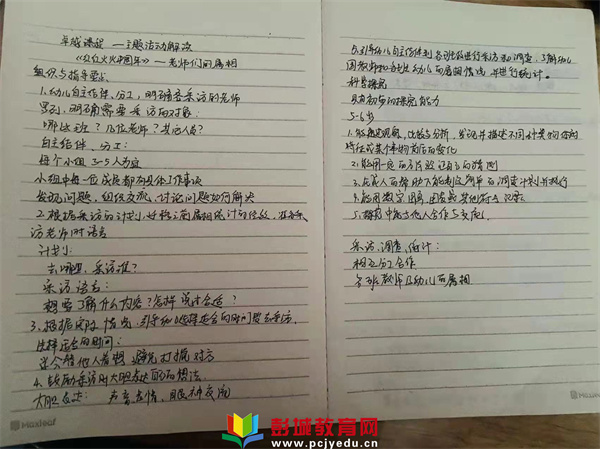 卓越课程 — 主题活动解读
《红红火火中国年》— 老师们的属相
组织与指导要求
1. 幼儿自主结伴、分工,明确需要采访的老师
明确需要采访的对象
哪些班?几位老师?其他人员?
自主结伴、分工:
每个小组3-5人为宜
小组中每一位成员都有具体工作事项
发现问题,组织交流,讨论问题如何解决
2. 根据采访的计划
访老师时语言
计划:
去哪里,采访谁?
采访语言:
想要了解什么内容?怎样说才合适?
3. 根据实际情况,引导幼儿选择适合的时间段去采访
选择适合的时间:
学会替他人着想 避免打扰对方
4. 鼓励采访时大胆表达自己的想法
大胆表达: 声音、表情、眼神交流
5. 引导幼儿自主结伴到各班级进行采访和调查,了解幼儿
园教师和班上幼儿的属相情况,并进行统计。
科学探究
具有初步的探究能力
5-6岁
1. 能通过观察、比较与分析,发现并描述不同种类物体的
特征或某个事物前后的变化
2. 能用一定的方法验证自己的猜测
3. 在成人的帮助下能制定简单的调查计划并执行
4. 能用数字、图画、图表或其他符号记录
5. 探究中能与他人合作与交流
采访、调查、统计:
相互分工合作
各班教师及幼儿的属相
Maxleaf
Maxleaf
彭城教育网
www.pcjyedu.cn